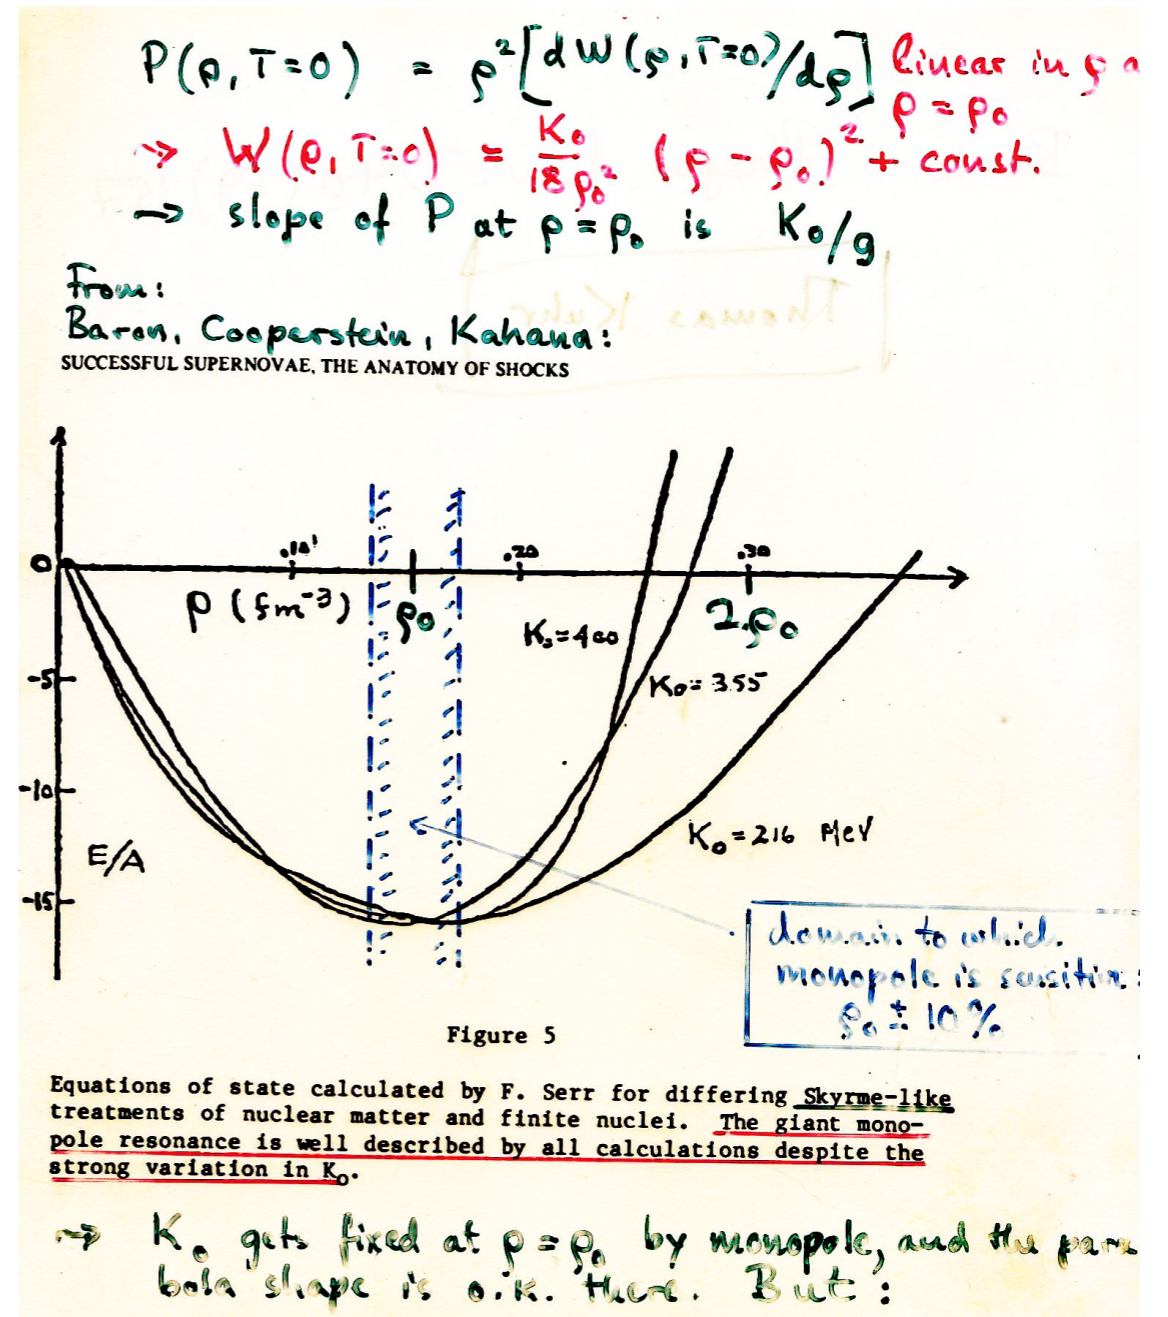 P(ρ, T=0) = ρ²[dW(ρ, T=0)/dρ] linear in ρ a
ρ = ρ₀
→ W(ρ, T=0) = K₀/18ρ₀² (ρ - ρ₀)² + const.
→ slope of P at ρ=ρ₀ is K₀/9
From:
Baron, Cooperstein, Kahana:
SUCCESSFUL SUPERNOVAE, THE ANATOMY OF SHOCKS
0 .10 .20 .30
ρ (fm⁻³) ρ₀ 2ρ₀
K₀=400
-5
K₀=355
-10
K₀=216 MeV
E/A
-15
domain to which
monopole is sensitiv :
ρ₀ ± 10%
Figure 5
Equations of state calculated by F. Serr for differing Skyrme-like
treatments of nuclear matter and finite nuclei. The giant mono-
pole resonance is well described by all calculations despite the
strong variation in K₀.
→ K₀ gets fixed at ρ=ρ₀ by monopole, and the para
bola shape is o.k. there. But :